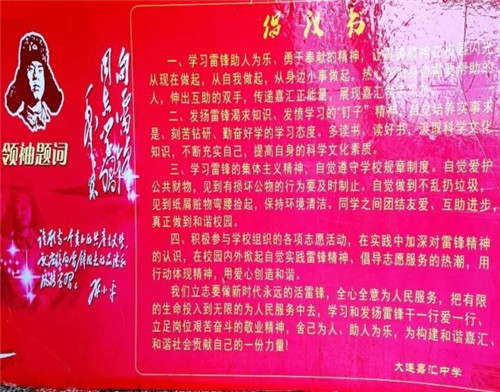 向雷锋
同志学习
毛泽东
领袖题词
倡议书
一、学习雷锋助人为乐、勇于奉献的精神，让雷锋精神在校园闪光
从现在做起，从自我做起，从身边小事做起，热
人，伸出互助的双手，传递嘉汇正能量，展现嘉汇
二、发扬雷锋渴求知识、发愤学习的“钉子”精神，自觉培养实事求
是、刻苦钻研、勤奋好学的学习态度，多读书、读好书，汲取科学文化
知识，不断充实自己，提高自身的科学文化素质。
三、学习雷锋的集体主义精神，自觉遵守学校规章制度。自觉爱护
公共财物，见到有损坏公物的行为要及时制止。自觉做到不乱扔垃圾，
见到纸屑赃物弯腰捡起，保持环境清洁。同学之间团结友爱、互助进步，
真正做到和谐校园。
四、积极参与学校组织的各项志愿活动，在实践中加深对雷锋精神
的认识，在校园内外掀起自觉实践雷锋精神、倡导志愿服务的热潮，用
行动体现精神，用爱心创造和谐。
我们立志要做新时代永远的活雷锋，全心全意为人民服务，把有限
的生命投入到无限的为人民服务中去，学习和发扬雷锋干一行爱一行、
立足岗位艰苦奋斗的敬业精神，舍己为人、助人为乐，为构建和谐嘉汇、
和谐社会贡献自己的一份力量！
大连嘉汇中学